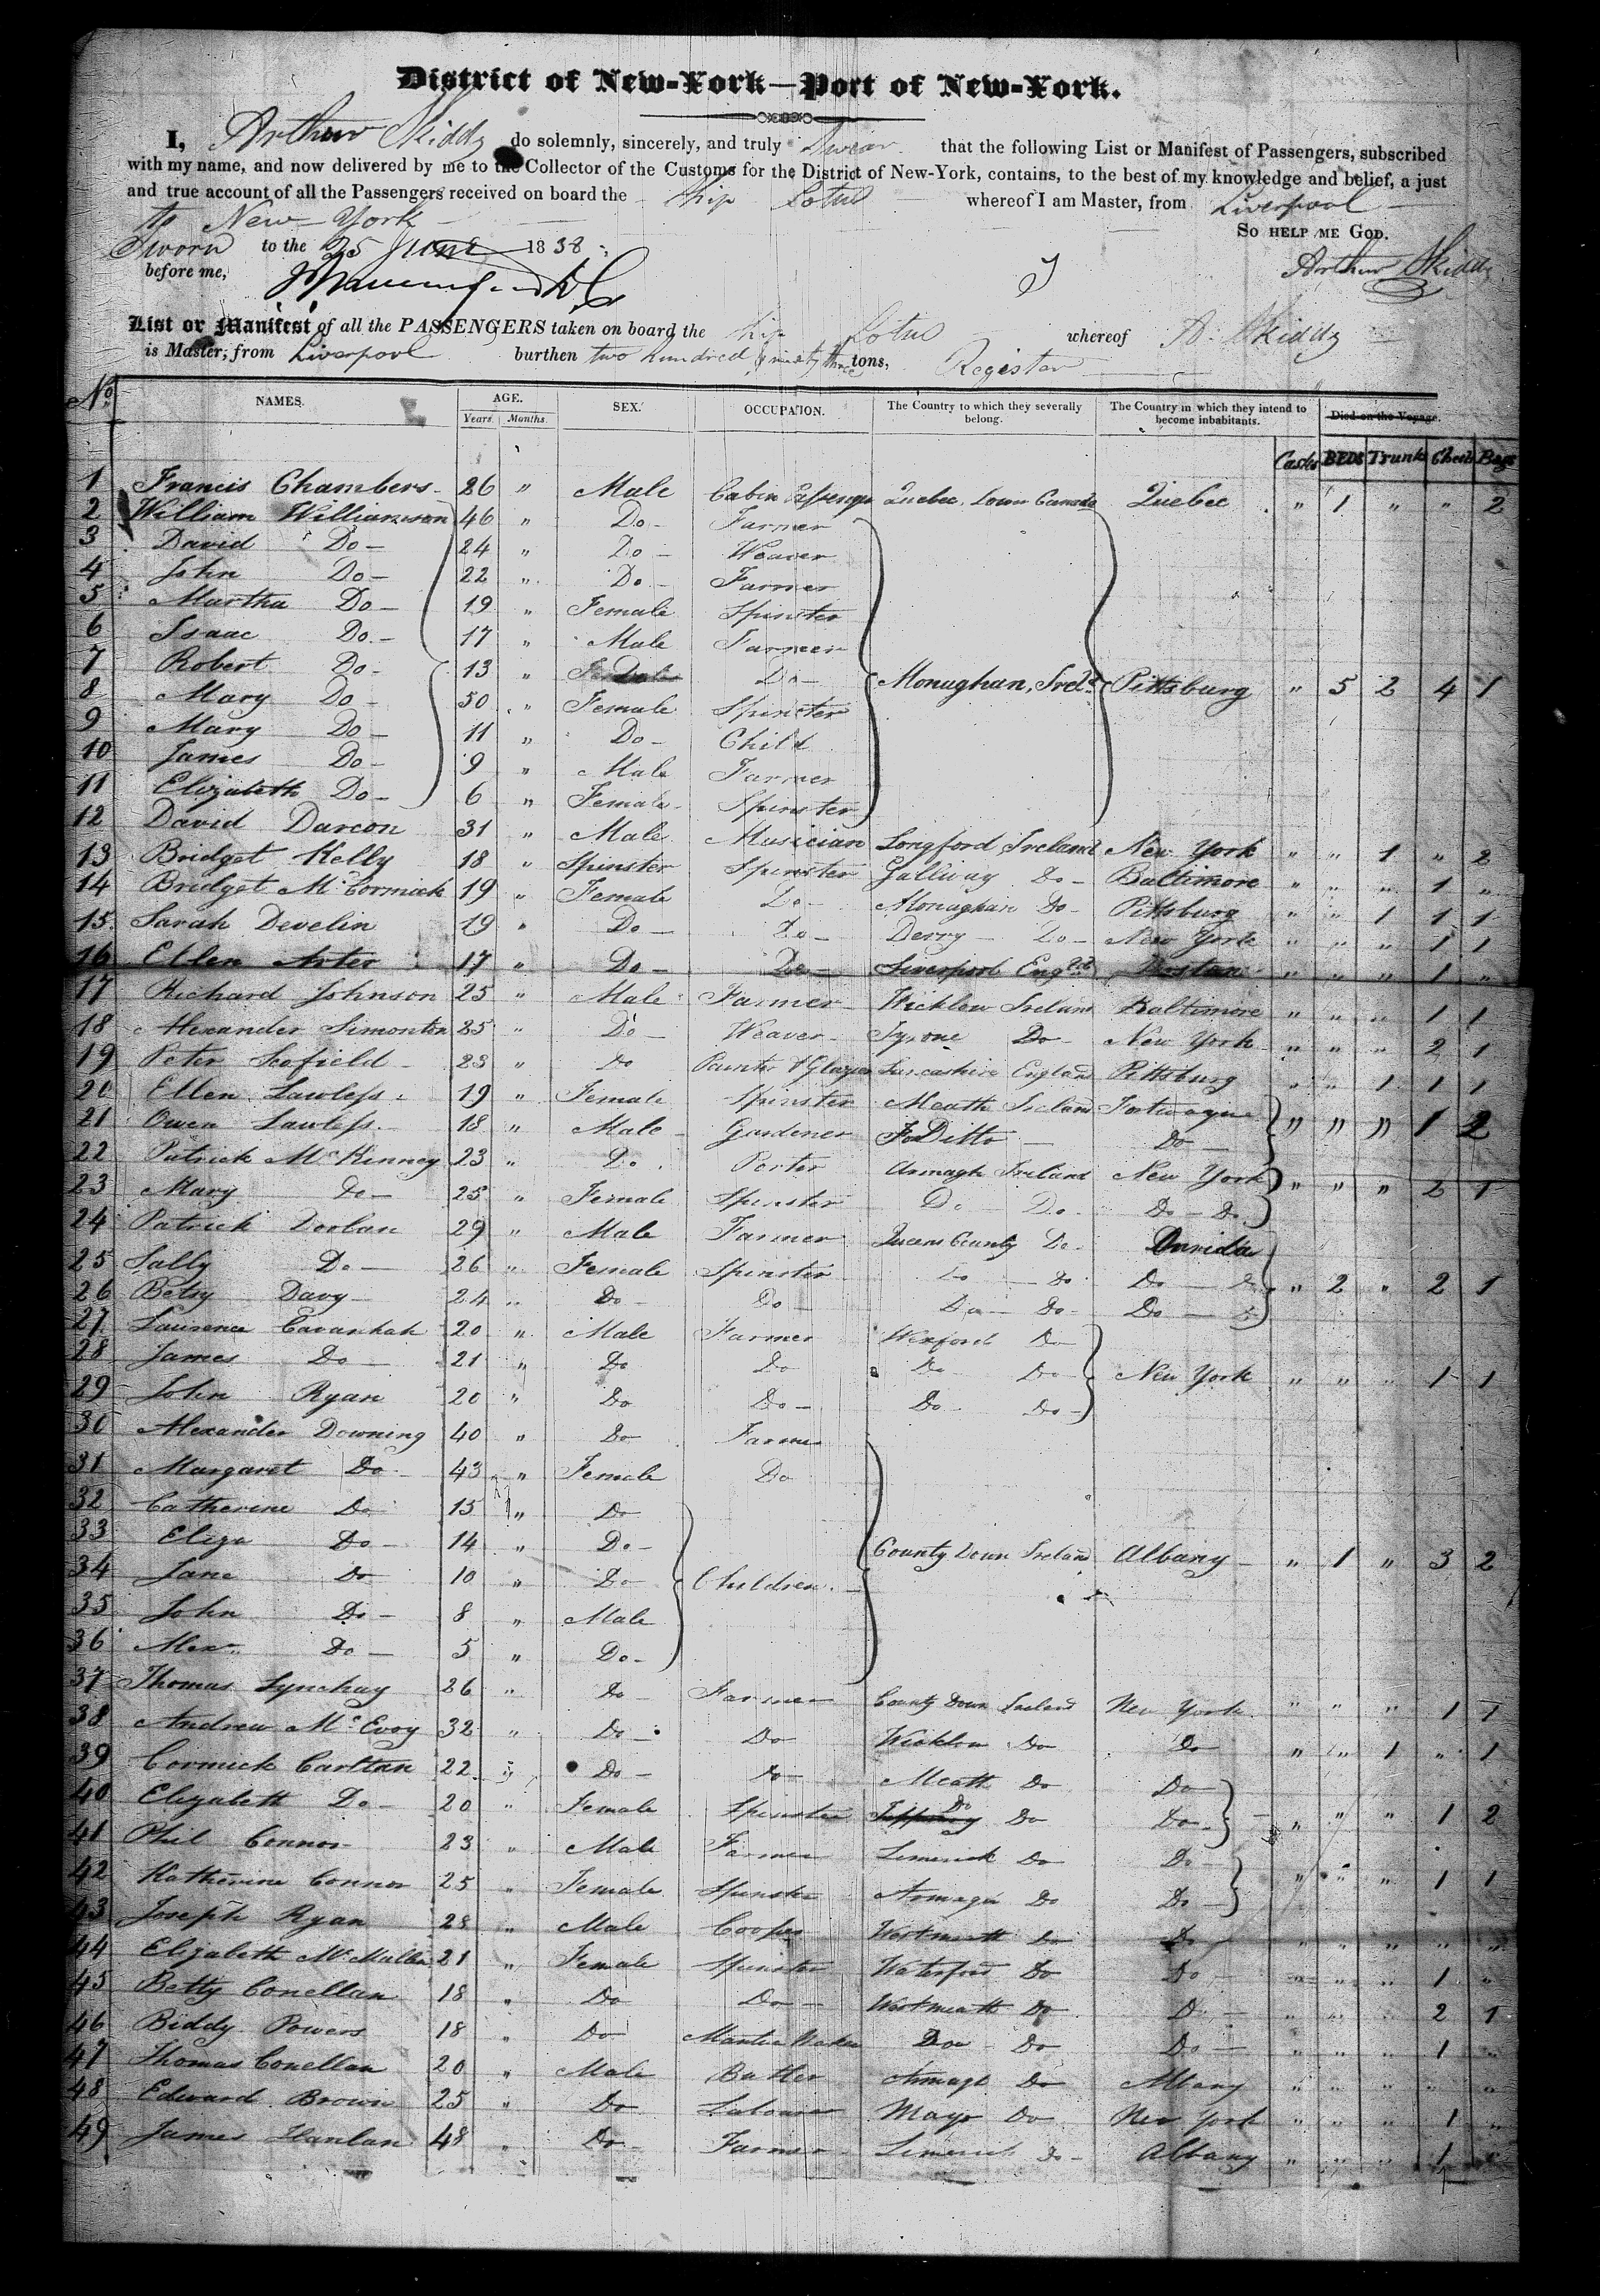 District of New-York—Port of New-York.
I, Arthur Skiddy do solemnly, sincerely, and truly Swear that the following List or Manifest of Passengers, subscribed
with my name, and now delivered by me to the Collector of the Customs for the District of New-York, contains, to the best of my knowledge and belief, a just
and true account of all the Passengers received on board the Ship Lotus whereof I am Master, from Liverpool
to New York
SO HELP ME GOD.
Sworn to the 25 June 1838
before me,
Arthur Skiddy
List or Manifest of all the PASSENGERS taken on board the Ship Lotus whereof A. Skiddy
is Master, from Liverpool burthen two hundred & ninety three tons, Register
No. NAMES. AGE. SEX. OCCUPATION. The Country to which they severally belong. The Country in which they intend to become inhabitants. Died on the Voyage.
Years Months
Casks BEDS Trunk Chests Bags
1 Francis Chambers 26 " Male Cabin Passenger Quebec, Lower Canada Quebec " 1 " " 2
2 William Williamson 46 " Do Farmer
3 David Do 24 " Do Weaver
4 John Do 22 " Do Farmer
5 Martha Do 19 " Female Spinster
6 Isaac Do 17 " Male Farmer
7 Robert Do 13 " Do Monaghan, Ireld. Pittsburg " 5 2 4 1
8 Mary Do 50 " Female Spinster
9 Mary Do 11 " Do Child
10 James Do 9 " Male Farmer
11 Elizabeth Do 6 " Female Spinster
12 David Darcon 31 " Male Musician Longford Ireland New York " " 1 " 2
13 Bridget Kelly 18 " Spinster Spinster Gallway Do Baltimore " " " 1 "
14 Bridget McCormick 19 " Female Do Monaghan Do Pittsburg " " 1 1 1
15 Sarah Develin 19 " Do Do Derry Do New York " " " 1 1
16 Ellen Arter 17 " Do Do Liverpool Engld Boston " " " 1 "
17 Richard Johnson 25 " Male Farmer Wicklow Ireland Baltimore " " " 1 1
18 Alexander Simonton 25 " Do Weaver Tyrone Do New York " " " 2 1
19 Peter Scofield 23 " Do Painter & Glazier Lancashire England Pittsburg " " 1 1 1
20 Ellen Lawless 19 " Female Spinster Meath Ireland
21 Owen Lawless 18 " Male Gardener Ditto Do " " " 1 2
22 Patrick McKinney 23 " Do Porter Armagh Ireland New York " " " 2 1
23 Mary Do 25 " Female Spinster Do Do Do Do
24 Patrick Doolan 29 " Male Farmer Queens County Do Oneida
25 Sally Do 26 " Female Spinster Do Do Do Do " 2 " 2 1
26 Betsy Davy 24 " Do Do Do Do Do Do
27 Laurence Cavanhah 20 " Male Farmer Wexford Do
28 James Do 21 " Do Do Do Do New York " " " 1 1
29 John Ryan 20 " Do Do Do Do
30 Alexander Downing 40 " Do Farmer
31 Margaret Do 43 " Female Do
32 Catherine Do 15 " Do
33 Eliza Do 14 " Do County Down Ireland Albany " 1 " 3 2
34 Jane Do 10 " Do Children
35 John Do 8 " Male
36 Alexr. Do 5 " Do
37 Thomas Lynchay 26 " Do Farmer County Down Ireland New York " " " 1 1
38 Andrew McEvoy 32 " Do Do Wicklow Do Do " " 1 " 1
39 Cormick Carltan 22 " Do Do Meath Do Do
40 Elizabeth Do 20 " Female Spinster Do Do Do " " " 1 2
41 Phil Connor 23 " Male Farmer Limerick Do Do
42 Katherine Connor 25 " Female Spinster Armagh Do Do " " " 1 1
43 Joseph Ryan 28 " Male Cooper Westmeath Do Do " " " " "
44 Elizabeth McMullen 21 " Female Spinster Waterford Do Do " " " 1 "
45 Betty Conellan 18 " Do Do Westmeath Do Do " " " 2 1
46 Biddy Powers 18 " Do Mantua Maker Do Do Do " " " 1 "
47 Thomas Conellan 20 " Male Butler Armagh Do Albany " " " " "
48 Edward Brown 25 " Do Labourer Mayo Do New York " " " 1 "
49 James Hanlan 48 " Do Farmer Limerick Do Albany " " " 1 "